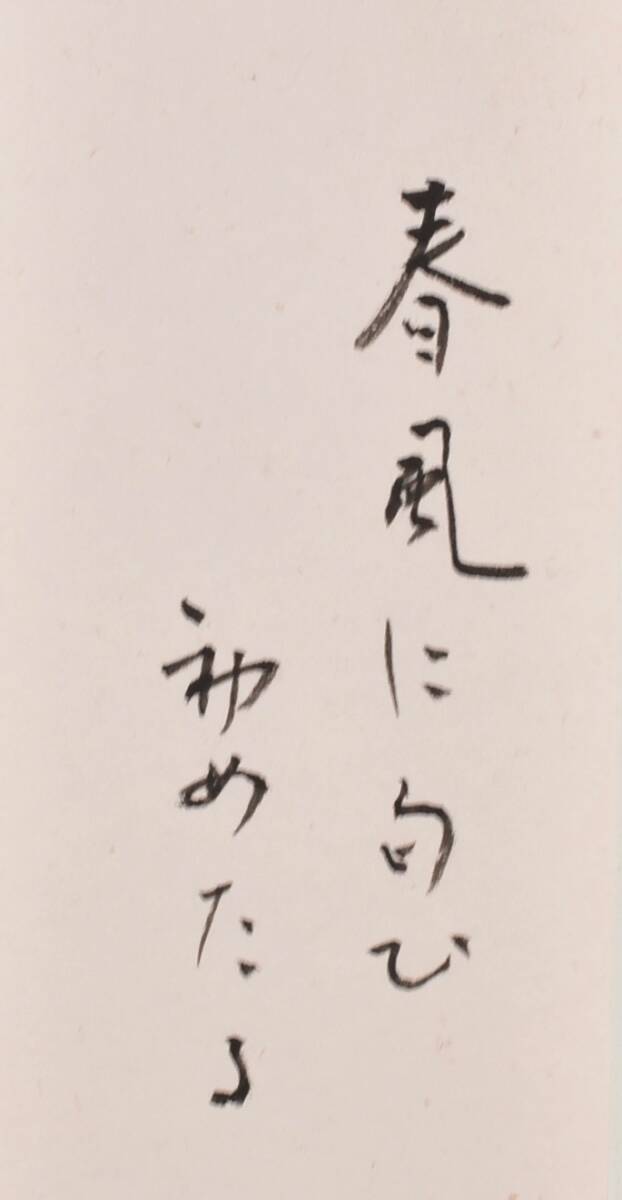 春風に匂ひ
初めたる